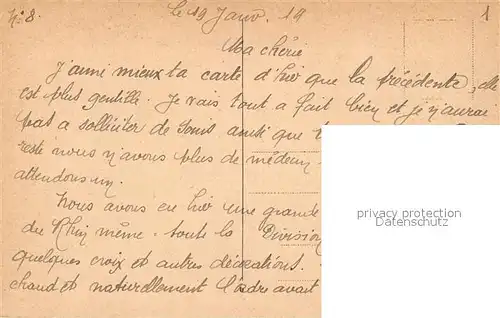 N° 8. le 19 Janv. 19 1
Ma chérie
J'aime mieux ta carte d'hier que la précédente, elle
est plus gentille. Je vais tout a fait bien et je n'aurai
pas a solliciter de
reste nous n'avons plus de médecin
attendons un.
Nous avons eu hier une grande
du Rhin même. toute la Division
quelques croix et autres décorations.
chaud et naturellement l'ordre avait
privacy protection
Datenschutz